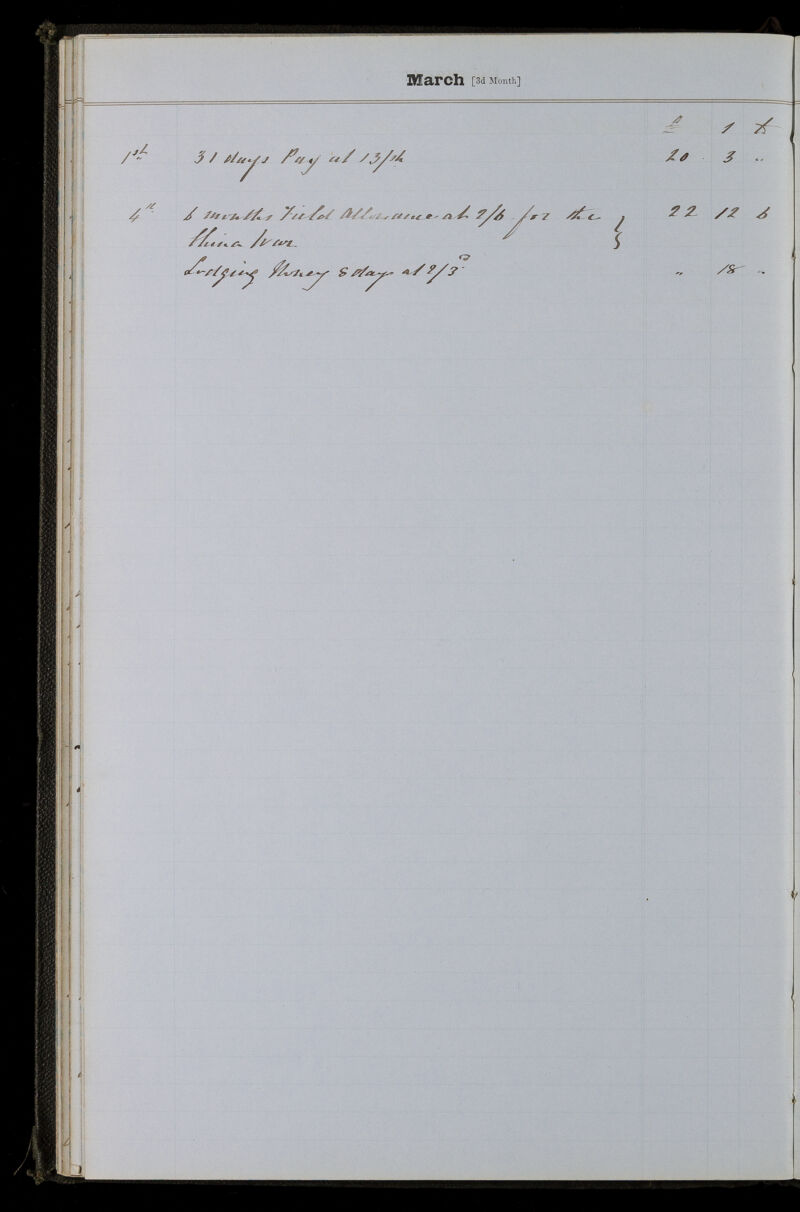 March [3d Month]
£ s d
1st 31 days Pay at 13/sh 20 3 "
4th 6 months Field Allowance at 2/6 for the } 22 12 6
China War.
Lodging Money 8 days at 2/3d " 18 "